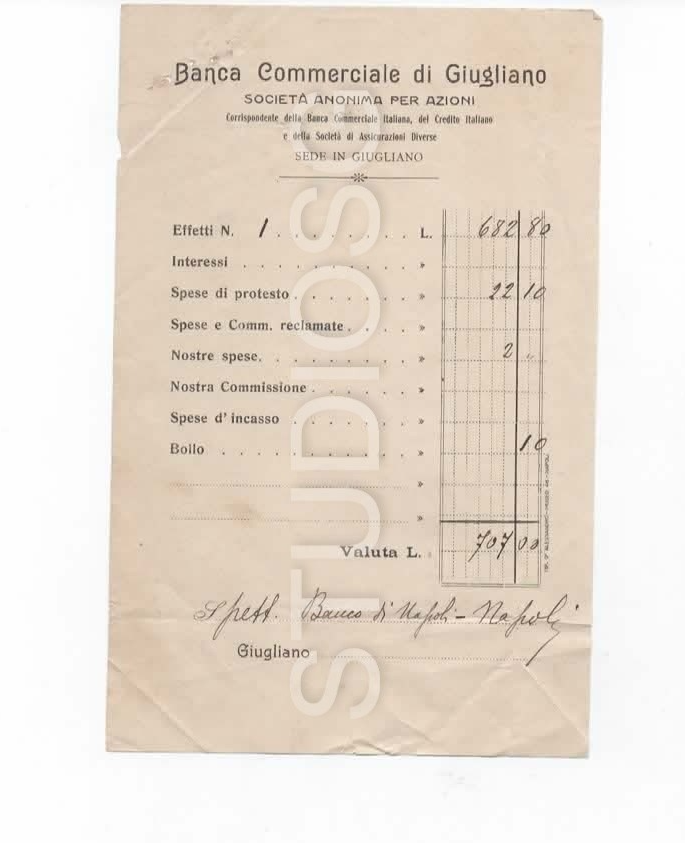 Banca Commerciale di Giugliano
SOCIETÀ ANONIMA PER AZIONI
Corrispondente della Banca Commerciale Italiana, del Credito Italiano
e della Società di Assicurazioni Diverse
SEDE IN GIUGLIANO
Effetti N. 1 . . . . . . . . L. 682 80
Interessi . . . . . . . . . . »
Spese di protesto . . . . . . . » 22 10
Spese e Comm. reclamate . . . . »
Nostre spese. . . . . . . . . » 2 „
Nostra Commissione . . . . . . »
Spese d'incasso . . . . . . . »
Bollo . . . . . . . . . . . » 10
»
»
Valuta L. 707 00
Spett. Banco di Napoli - Napoli
Giugliano
STUDIOSO